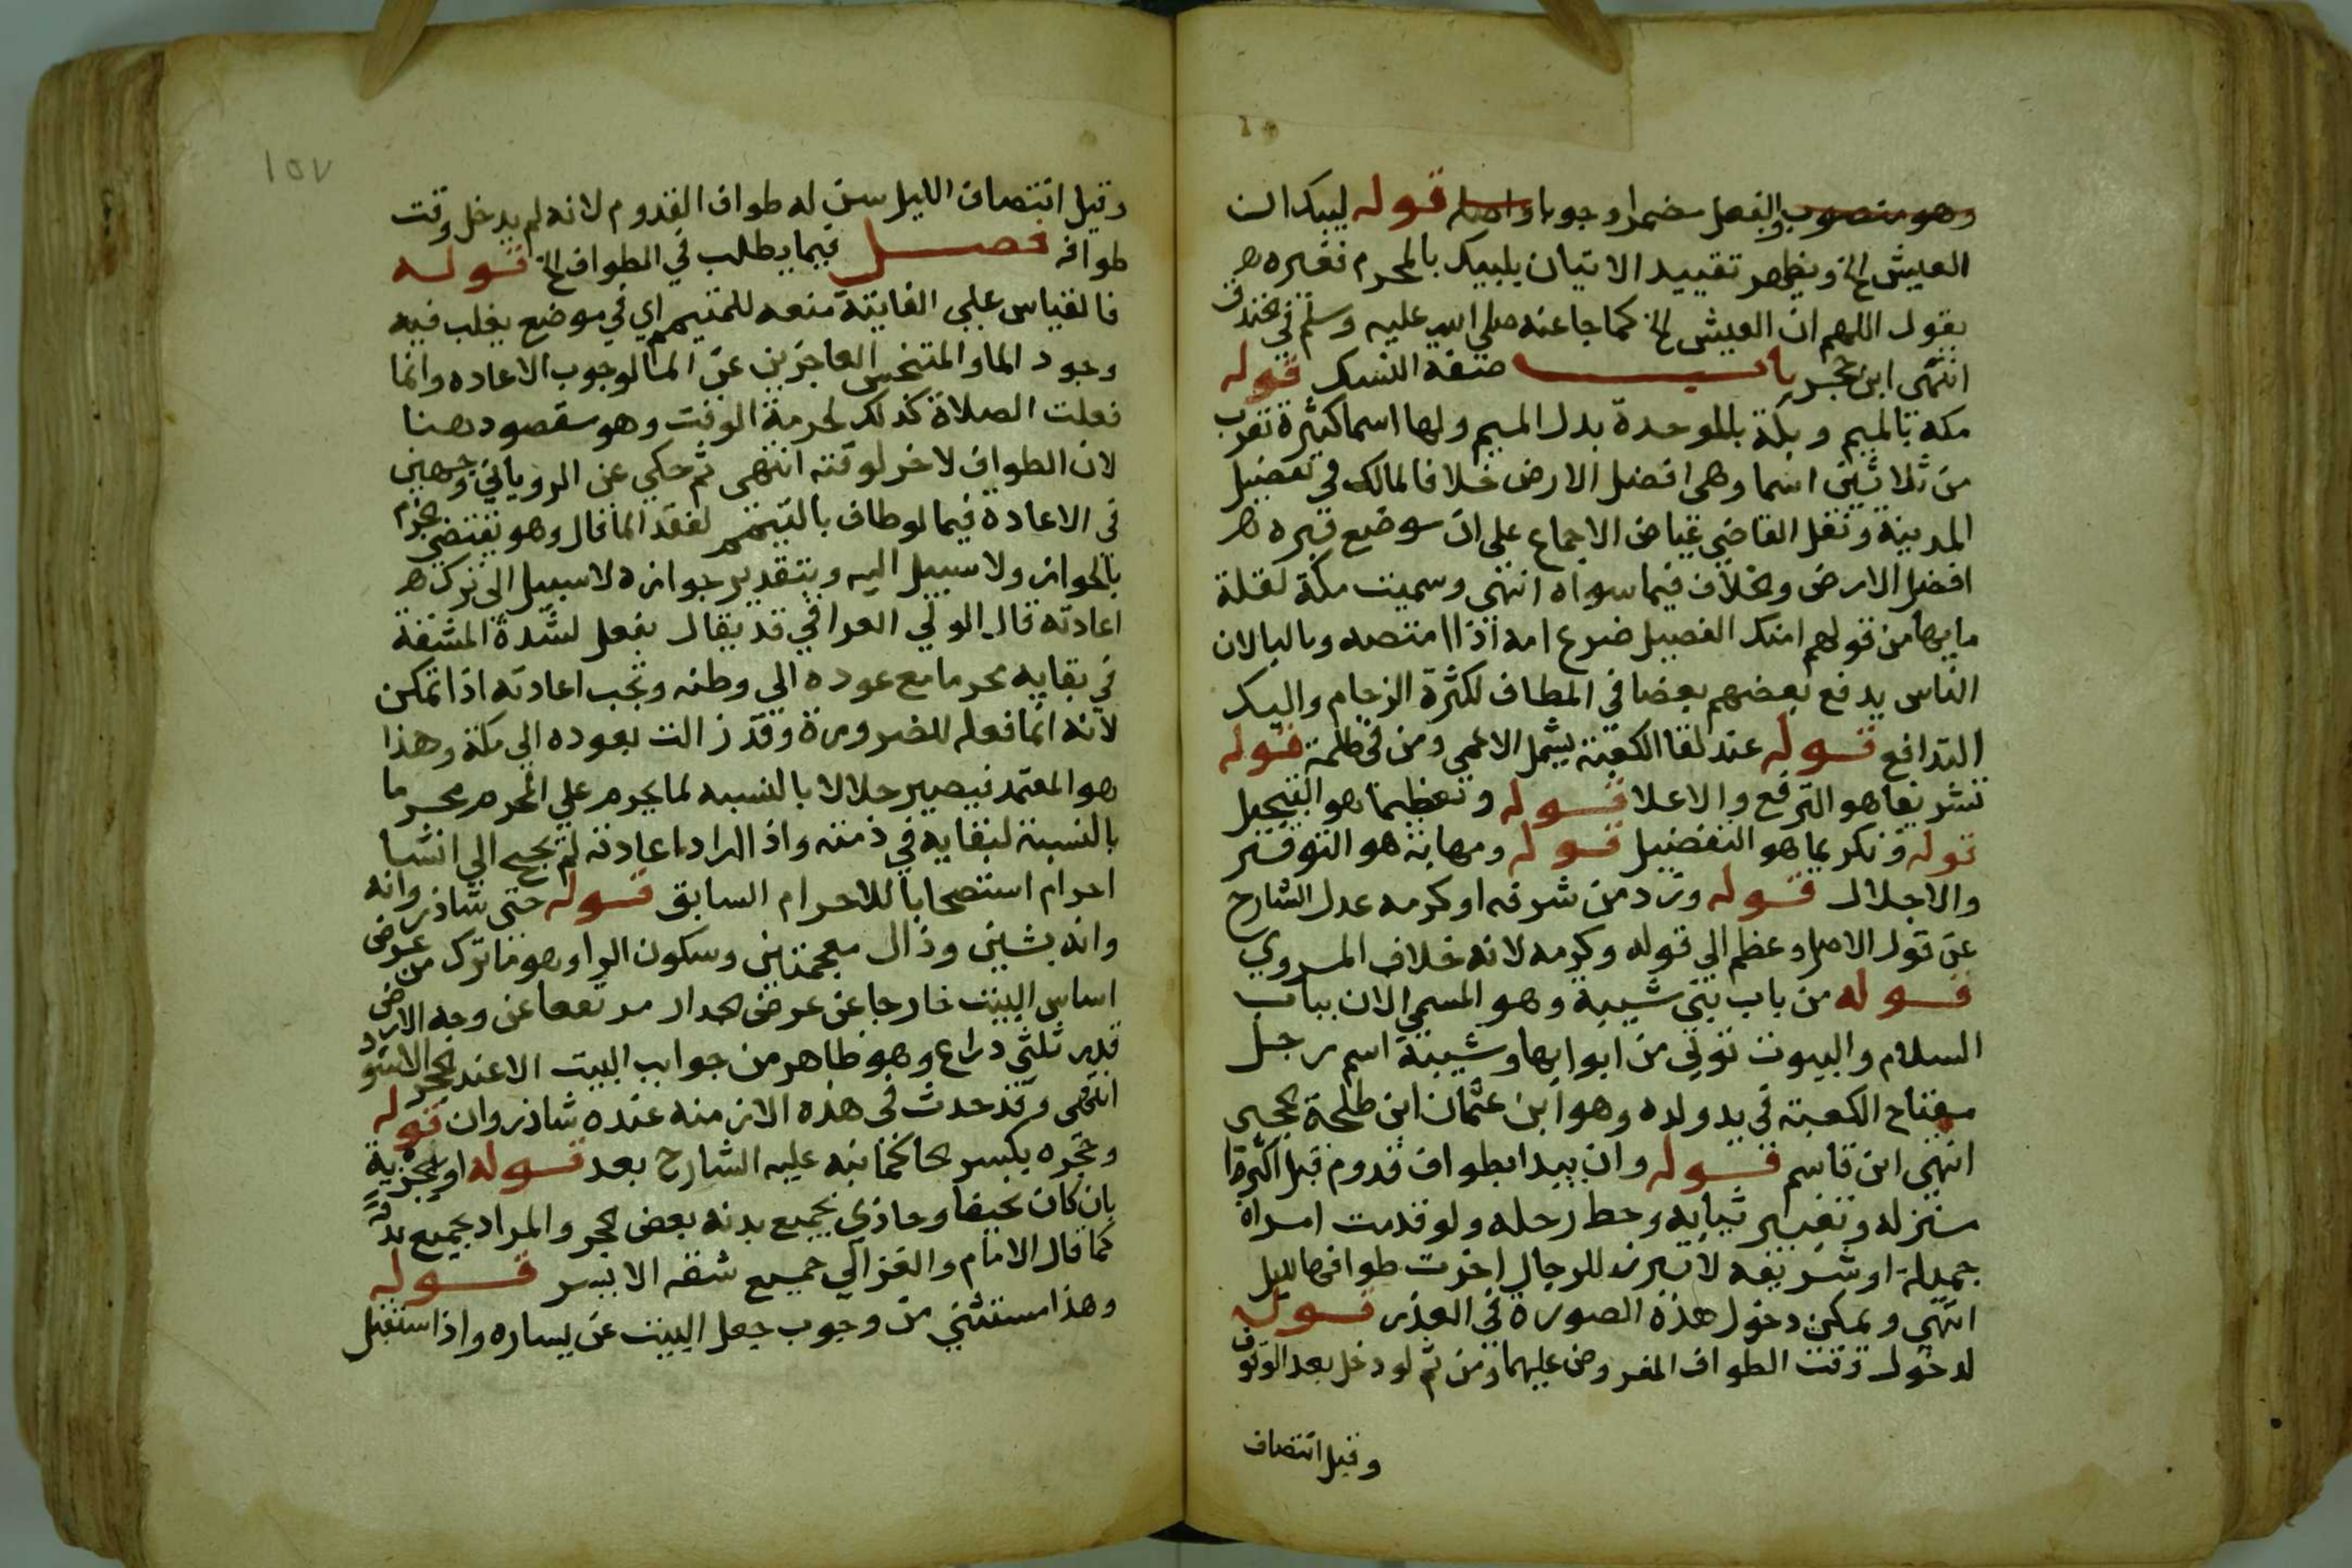 وهو منصوب بالفعل مضمرا وجوبا واصله قوله لبيك ان
العيش الخ ويظهر تقييد الاتيان بلبيك بالمحرم فغيره
يقول اللهم ان العيش الخ كما جا عنه صلي الله عليه وسلم في الخندق
انتهى ابن حجر باب صفة النسك قوله
مكة بالميم وبكة بالموحدة بدل الميم ولها اسما كثيرة تقرب
من ثلاثين اسما وهي افضل الارض خلافا لمالك في تفضيل
المدينة ونقل القاضي عياض الاجماع على ان موضع قبره
افضل الارض والخلاف فيما سواه انتهى وسميت مكة لقلة
مايها من قولهم امتك الفصيل ضرع امه اذا امتصه وبالبا لان
الناس يدفع بعضهم بعضا في المطاف لكثرة الزحام والبك
التدافع قوله عند لقا الكعبة يشمل الاعمى ومن في ظلمة قوله
تشريفا هو الترفع والاعلا قوله وتعظيما هو التبجيل
قوله وتكريما هو التفضيل قوله ومهابة هو التوقير
والاجلال قوله وزد من شرفه او كرمه عدل الشارح
عن قول الاصل وعظم الي قوله وكرمه لانه خلاف المروي
قوله من باب بني شيبة وهو المسمي الان بباب
السلام والبيوت تؤتي من ابوابها وشيبة اسم رجل
مفتاح الكعبة في يد ولده وهو ابن عثمان ابن طلحة الحجبي
انتهى ابن قاسم قوله وان يبدا بطواف قدوم قبل اكترا
منزله وتغيير ثيابه وحط رحله ولو قدمت امراة
جميلة او شريفة لا تبرز للرجال اخرت طوافها لليل
انتهى ويمكن دخول هذة الصورة في العذر قوله
لدخول وقت الطواف المفروض عليهما ومن ثم لو دخل بعد الوقوف
وقبل انتصاف
وقبل انتصاف الليل سن له طواف القدوم لانه لم يدخل وقت
طوافه فصل فيما يطلب في الطواف الخ قوله
فالقياس علي الفايتة منعه للمتيمم اي في موضع يغلب فيه
وجود الما والمتنجس العاجزين عن الما لوجوب الاعاده وانما
فعلت الصلاة كذلك لحرمة الوقت وهو مقصود هنا
لان الطواف لا اخر لوقته انتهى ثم حكي عن الروياني وجهين
في الاعادة فيما لو طاف بالتيمم لفقد الما قال وهو يقتضي الجزم
بالجواز ولا سبيل اليه وبتقدير جوازه لا سبيل الى ترك
اعادته قال الولي العراقي قد يقال يفعل لشدة المشقة
في بقايه محرما مع عوده الي وطنه وتجب اعادته اذا تمكن
لانه انما فعله للضرورة وقد زالت بعوده الي مكة وهذا
هو المعتمد فيصير حلالا بالنسبه لما يحرم علي المحرم محرما
بالنسبة لبقايه في ذمته واذا اراد اعادته لم يحتج الي انشا
احرام استصحابا للاحرام السابق قوله حتى شاذروانه
وانه بشين وذال معجمتين وسكون الرا وهو ما ترك من عرض
اساس البيت خارجا عن عرض الجدار مرتفعا عن وجه الارض
قدر ثلثي ذراع وهو ظاهر من جوانب البيت الا عند الحجر الاسود
انتهى وقد حدث في هذه الازمنه عنده شاذروان قوله
وحجره بكسر الحا كما نبه عليه الشارح بعد قوله او بجزيه
بان كان نحيفا وحاذي بجميع بدنه بعض الحجر والمراد بجميع بدنه
كما قال الامام والغزالي جميع شقه الايسر قوله
وهذا مستثني من وجوب جعل البيت عن يساره واذا استقبل
١٥٧